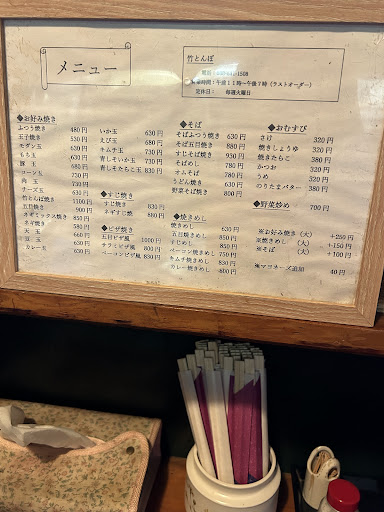 メニュー
竹とんぼ
営業時間：午前11時～午後7時（ラストオーダー）
定休日： 毎週火曜日
◆お好み焼き
ふつう焼き 480円
玉子焼き 530円
モダン玉 630円
もち玉 630円
豚玉 630円
コーン玉 730円
肉玉 730円
チーズ玉 630円
竹とんぼ焼き 1100円
五目焼き 900円
ネギミックス焼き 850円
ネギ焼き 580円
天玉 660円
豆玉 630円
カレー玉 630円
いか玉 630円
えび玉 680円
キムチ玉 730円
青しそいか玉 730円
青しそたらこ玉 830円
◆すじ焼き
すじ焼き 830円
ネギすじ焼 880円
◆ピザ焼き
五目ピザ風 1000円
サラミピザ風 800円
ベーコンピザ風 830円
◆そば
そばふつう焼き 630円
そば五目焼き 880円
すじそば焼き 930円
そばめし 750円
オムそば 780円
うどん焼き 630円
野菜そば焼き 780円
◆焼きめし
焼きめし 650円
五目焼きめし 850円
すじめし 850円
ベーコン焼きめし 750円
キムチ焼きめし 830円
カレー焼きめし 680円
◆おむすび
さけ 320円
焼きしょうゆ 320円
焼きたらこ 380円
かつお 320円
うめ 320円
のりたまバター 380円
◆野菜炒め 700円
※お好み焼き（大） +250円
※焼きめし （大） +150円
※そば （大） +100円
※マヨネーズ追加 40円